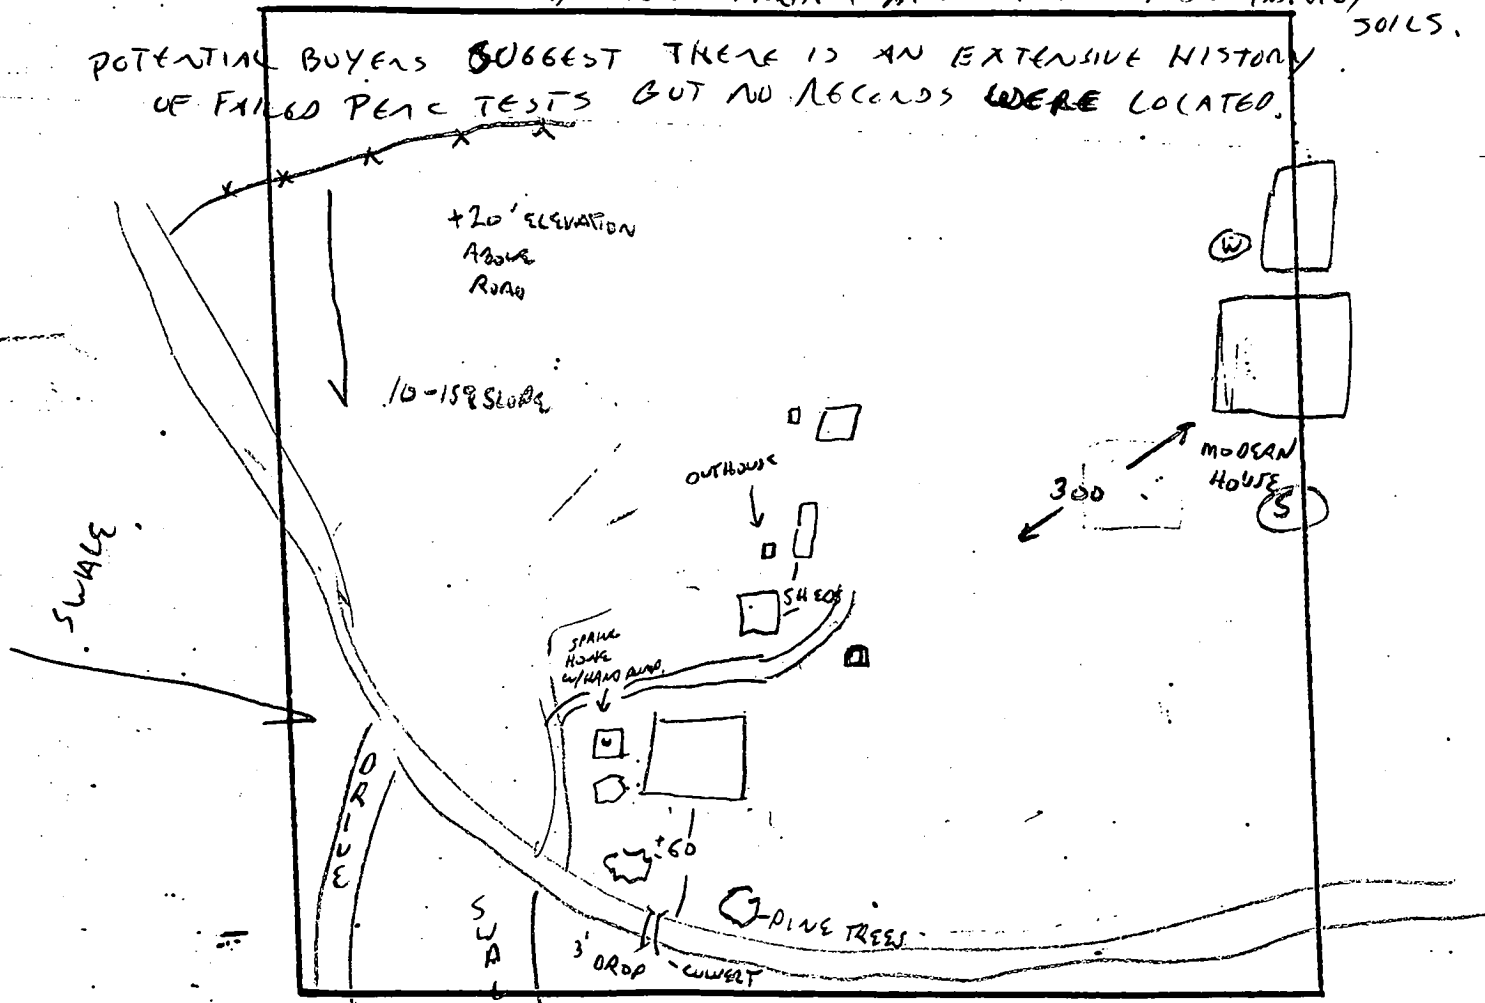 SOILS.
POTENTIAL BUYERS SUGGEST THERE IS AN EXTENSIVE HISTORY
OF FAILED PERC TESTS BUT NO RECORDS WERE LOCATED.
+20' ELEVATION
ABOVE
ROAD
W
10-15% SLOPE
OUTHOUSE
MODERN
HOUSE
300
S
SWALE
SHEDS
SPRING
HOUSE
W/HAND PUMP.
DRIVE
±60
SWAL
PINE TREES
3'
DROP
-CULVERT